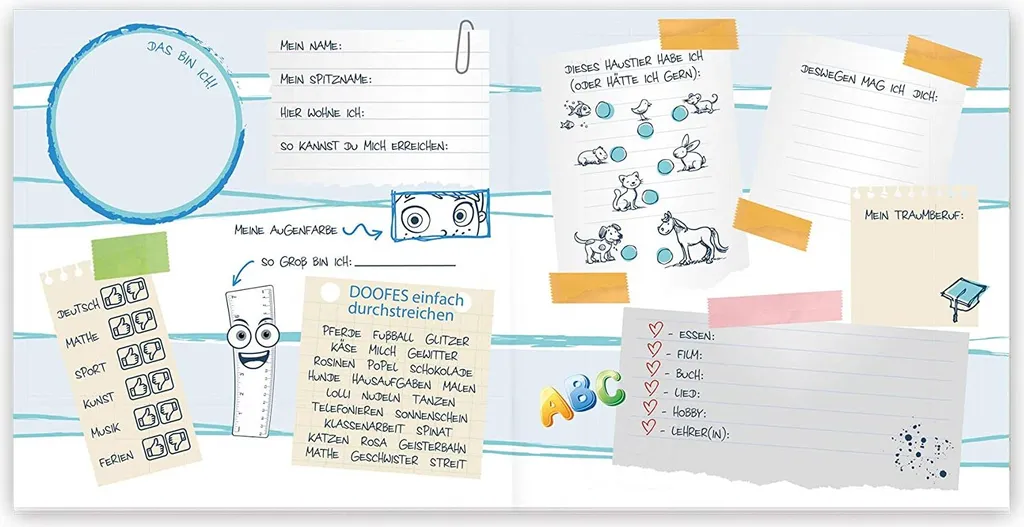 DAS BIN ICH!
MEIN NAME:
MEIN SPITZNAME:
HIER WOHNE ICH:
SO KANNST DU MICH ERREICHEN:
MEINE AUGENFARBE
SO GROß BIN ICH:
DEUTSCH
MATHE
SPORT
KUNST
MUSIK
FERIEN
DOOFES einfach
durchstreichen
PFERDE FUßBALL GLITZER
KÄSE MILCH GEWITTER
ROSINEN POPEL SCHOKOLADE
HUNDE HAUSAUFGABEN MALEN
LOLLI NUDELN TANZEN
TELEFONIEREN SONNENSCHEIN
KLASSENARBEIT SPINAT
KATZEN ROSA GEISTERBAHN
MATHE GESCHWISTER STREIT
DIESES HAUSTIER HABE ICH
(ODER HÄTTE ICH GERN):
DESWEGEN MAG ICH DICH:
MEIN TRAUMBERUF:
ABC
- ESSEN:
- FILM:
- BUCH:
- LIED:
- HOBBY:
- LEHRER(IN):